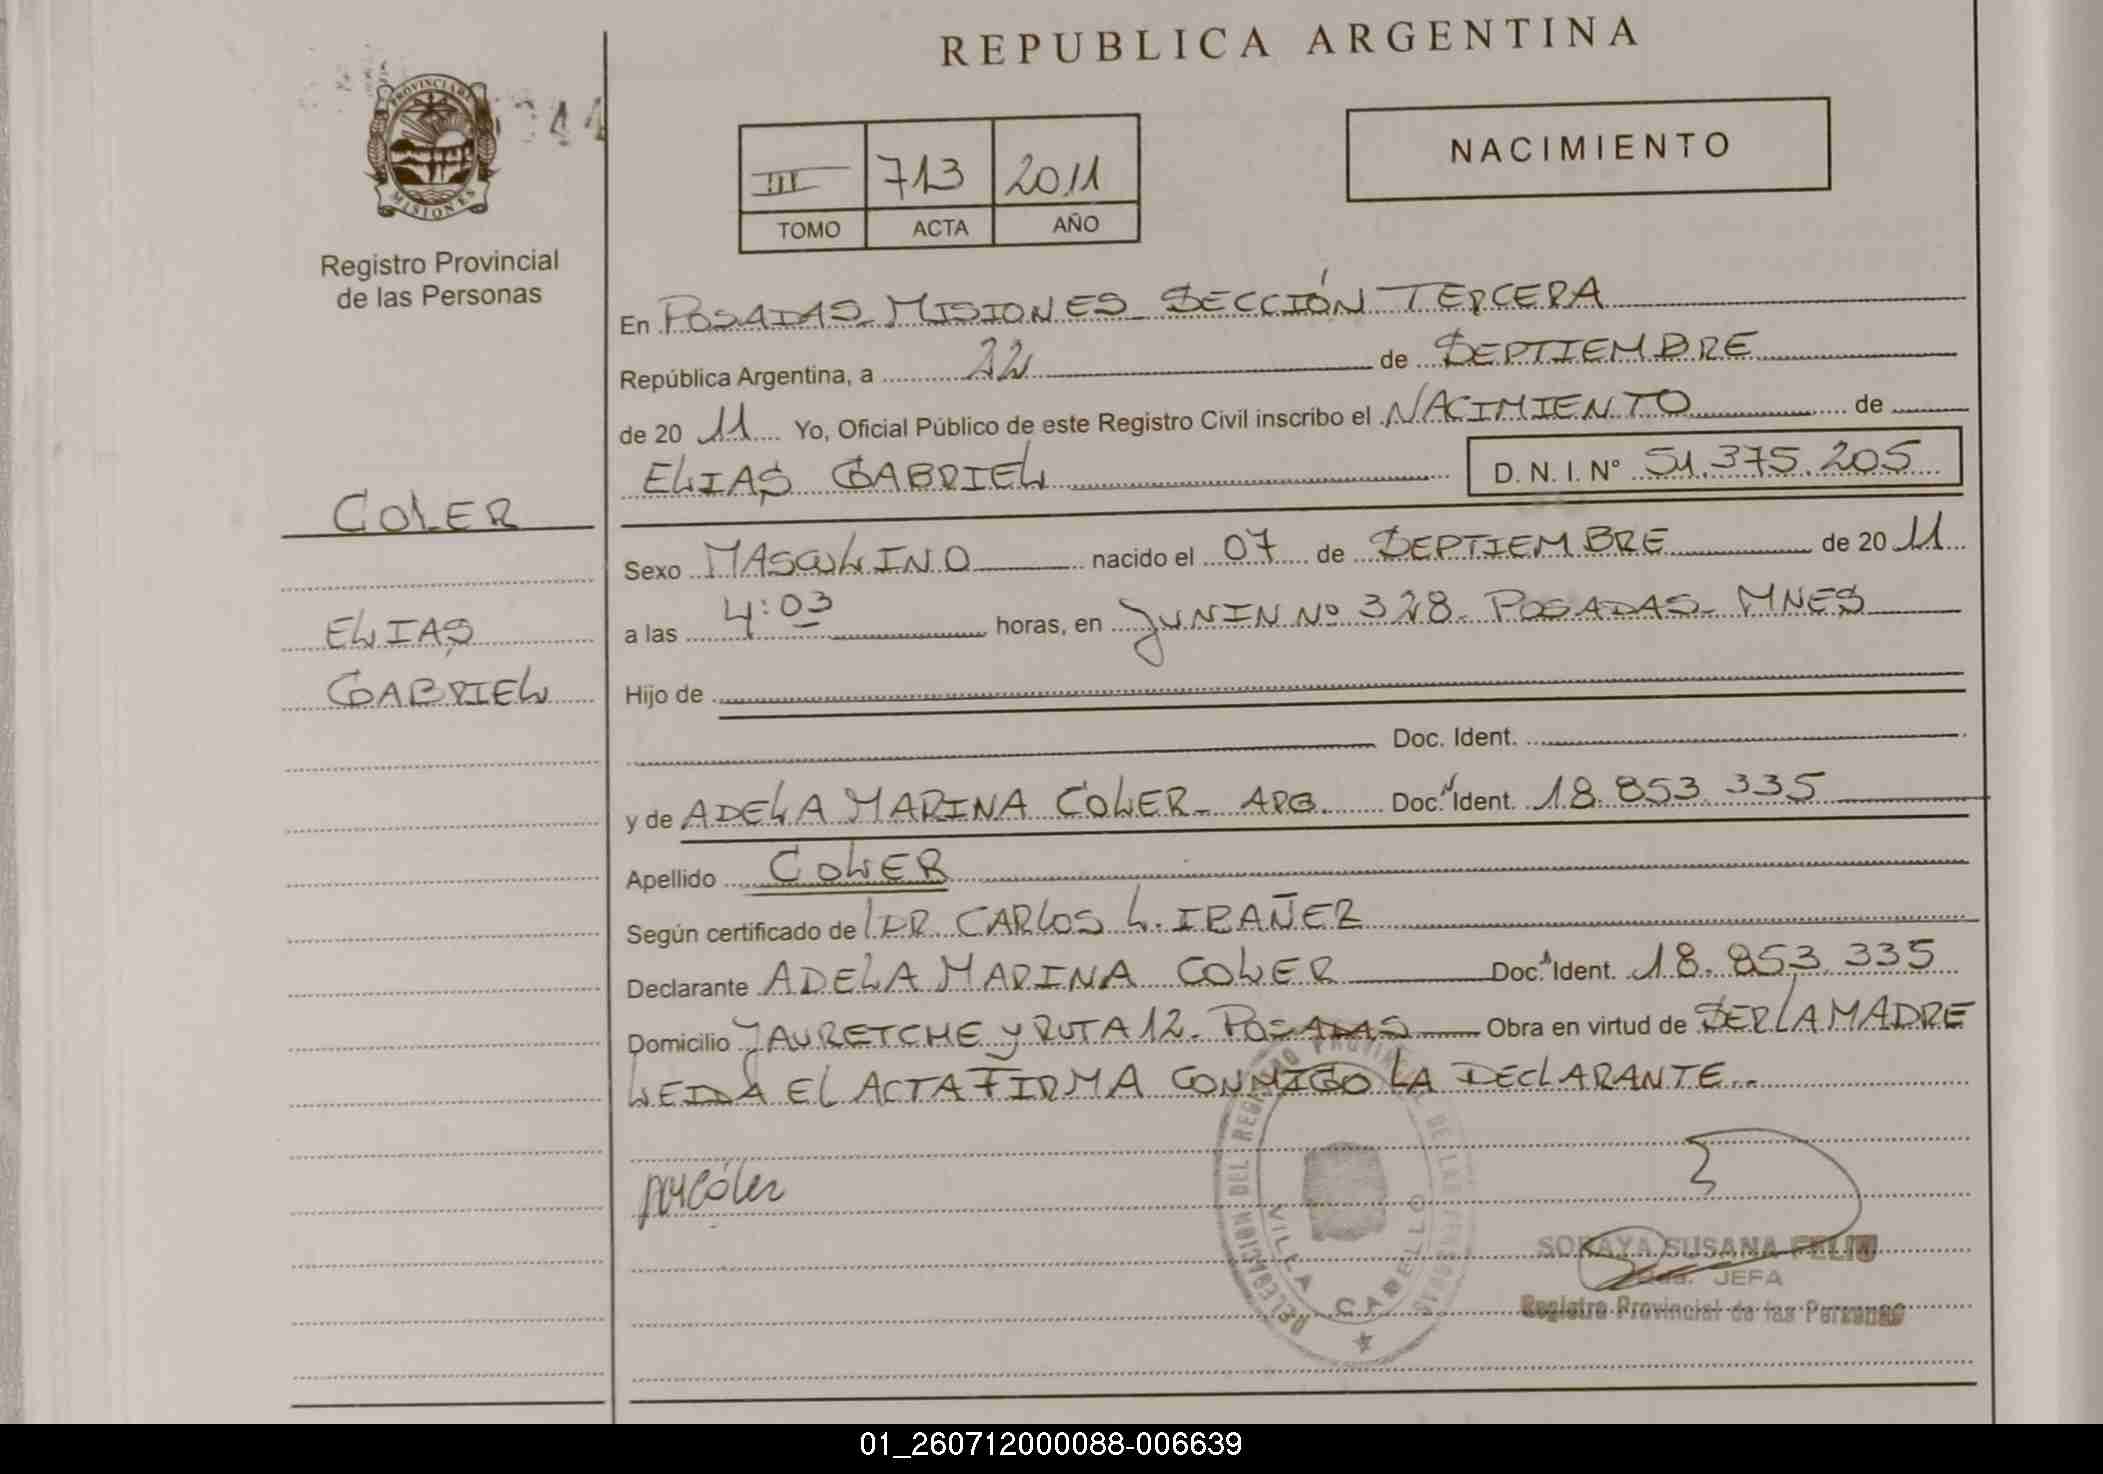 REPUBLICA ARGENTINA
PROVINCIA DE
MISIONES
Registro Provincial
de las Personas
III 713 2011
TOMO ACTA AÑO
NACIMIENTO
En POSADAS MISIONES SECCIÓN TERCERA
República Argentina, a 22 de SEPTIEMBRE
de 2011 Yo, Oficial Público de este Registro Civil inscribo el NACIMIENTO de
ELIAS GABRIEL D. N. I. N° 51.375.205
COLER
ELIAS
GABRIEL
Sexo MASCULINO nacido el 07 de SEPTIEMBRE de 2011
a las 4:03 horas, en JUNIN Nº 328 - POSADAS - MNES
Hijo de
Doc. Ident.
y de ADELA MARINA COLER - ARG. Doc. Ident. 18.853.335
Apellido COLER
Según certificado de DR CARLOS L. IBAÑEZ
Declarante ADELA MARINA COLER Doc. Ident. 18.853.335
Domicilio JAURETCHE y RUTA 12 - POSADAS Obra en virtud de SER LA MADRE
LEIDA EL ACTA FIRMA CONMIGO LA DECLARANTE.-
DELEGACION DEL REGISTRO PROVINCIAL DE LAS PERSONAS
VILLA CABELLO
Cóler
SORAYA SUSANA FELIU
JEFA
Registro Provincial de las Personas
01_260712000088-006639